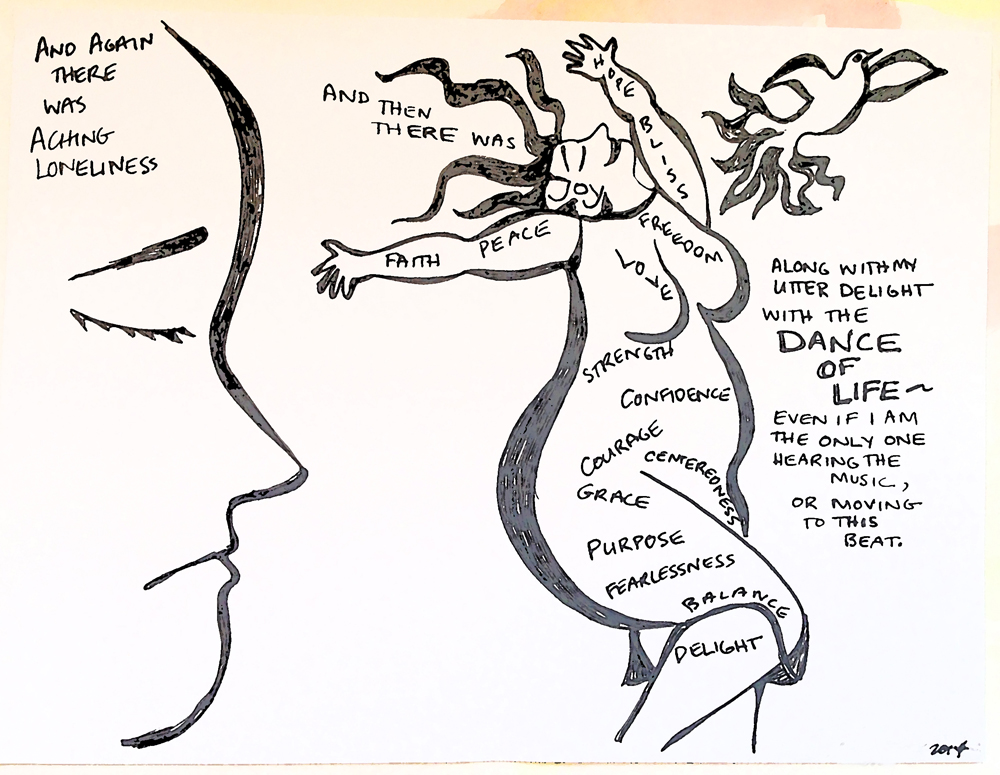 AND AGAIN
THERE
WAS
ACHING
LONELINESS
AND THEN
THERE WAS
HOPE
BLISS
JOY
FAITH PEACE
FREEDOM
LOVE
STRENGTH
CONFIDENCE
COURAGE
CENTEREDNESS
GRACE
PURPOSE
FEARLESSNESS
BALANCE
DELIGHT
ALONG WITH MY
UTTER DELIGHT
WITH THE
DANCE
OF
LIFE~
EVEN IF I AM
THE ONLY ONE
HEARING THE
MUSIC,
OR MOVING
TO THIS
BEAT.